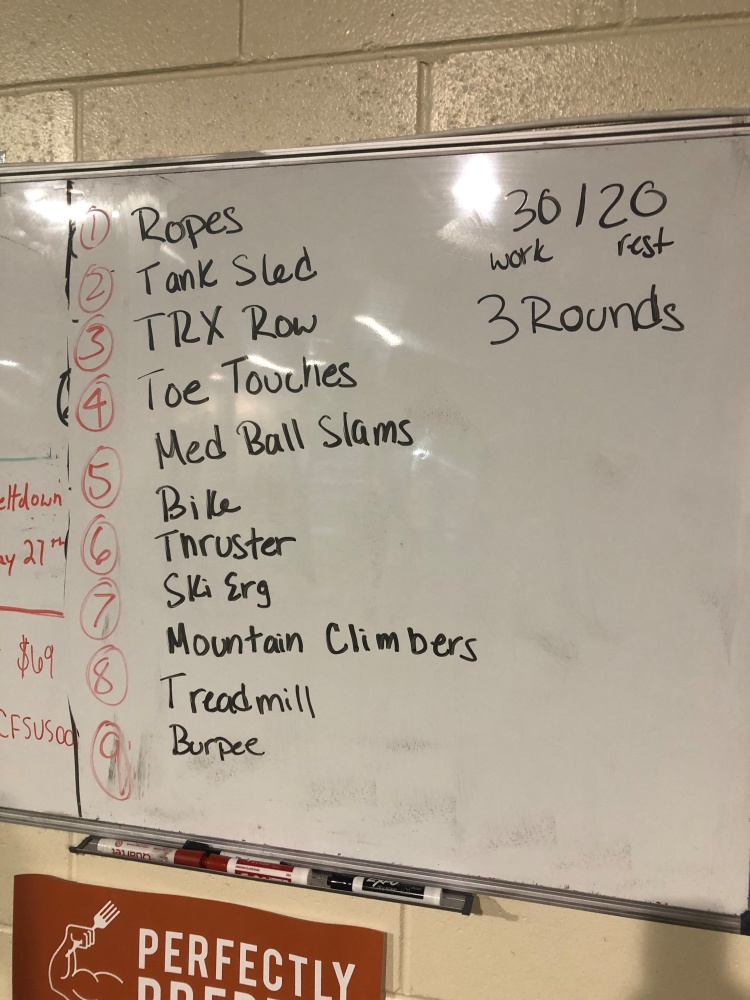 30/20
work rest
3 Rounds
① Ropes
② Tank Sled
③ TRX Row
④ Toe Touches
Med Ball Slams
⑤
Bike
⑥ Thruster
⑦ Ski Erg
Mountain Climbers
⑧
Treadmill
⑨ Burpee
eltdown
ay 27th
$69
CFSUSOO
EXPO
PERFECTLY